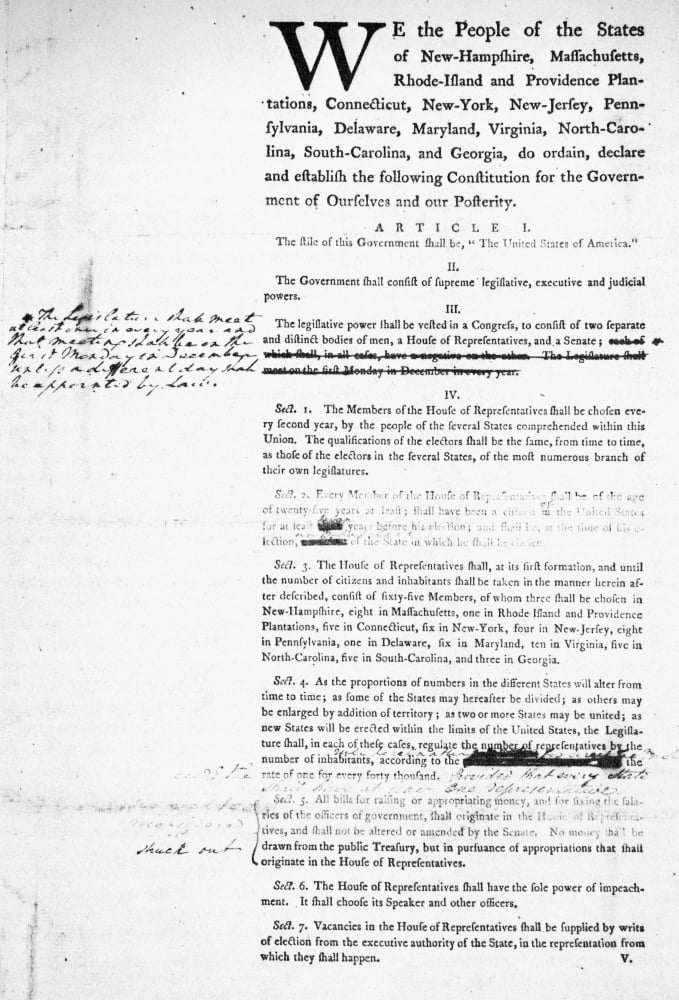 WE the People of the States
of New-Hampſhire, Maſſachuſetts,
Rhode-Iſland and Providence Plan-
tations, Connecticut, New-York, New-Jerſey, Penn-
ſylvania, Delaware, Maryland, Virginia, North-Caro-
lina, South-Carolina, and Georgia, do ordain, declare
and eſtabliſh the following Conſtitution for the Govern-
ment of Ourſelves and our Poſterity.
ARTICLE I.
The ſtile of this Government ſhall be, “ The United States of America.”
II.
The Government ſhall conſiſt of ſupreme legiſlative, executive and judicial
powers.
III.
The legiſlative power ſhall be veſted in a Congreſs, to conſiſt of two ſeparate
and diſtinct bodies of men, a Houſe of Repreſentatives, and a Senate; each of
which ſhall, in all caſes, have a negative on the other. The Legiſlature ſhall
meet on the firſt Monday in December in every year.
The Legislature shall meet
at least once in every year and
that meeting shall be on the
first Monday in December
unless a different day shall
be appointed by Law.
IV.
Sect. 1. The Members of the Houſe of Repreſentatives ſhall be choſen eve-
ry ſecond year, by the people of the ſeveral States comprehended within this
Union. The qualifications of the electors ſhall be the ſame, from time to time,
as thoſe of the electors in the ſeveral States, of the moſt numerous branch of
their own legiſlatures.
Sect. 2. Every Member of the Houſe of Repreſentatives ſhall be of the age
of twenty-five years at leaſt; ſhall have been a citizen of the United States
for at leaſt years before his election; and ſhall be, at the time of his e-
lection, of the State in which he ſhall be choſen.
Sect. 3. The Houſe of Repreſentatives ſhall, at its firſt formation, and until
the number of citizens and inhabitants ſhall be taken in the manner herein af-
ter deſcribed, conſiſt of ſixty-five Members, of whom three ſhall be choſen in
New-Hampſhire, eight in Maſſachuſetts, one in Rhode-Iſland and Providence
Plantations, five in Connecticut, ſix in New-York, four in New-Jerſey, eight
in Pennſylvania, one in Delaware, ſix in Maryland, ten in Virginia, five in
North-Carolina, five in South-Carolina, and three in Georgia.
Sect. 4. As the proportions of numbers in the different States will alter from
time to time; as ſome of the States may hereafter be divided; as others may
be enlarged by addition of territory; as two or more States may be united; as
new States will be erected within the limits of the United States, the Legiſla-
ture ſhall, in each of theſe caſes, regulate the number of repreſentatives by the
number of inhabitants, according to the the
rate of one for every forty thouſand. Provided that every State
shall have at least one representative
Sect. 5. All bills for raiſing or appropriating money, and for fixing the ſala-
ries of the officers of government, ſhall originate in the Houſe of Repreſenta-
tives, and ſhall not be altered or amended by the Senate. No money ſhall be
drawn from the public Treaſury, but in purſuance of appropriations that ſhall
originate in the Houſe of Repreſentatives.
struck out
Sect. 6. The Houſe of Repreſentatives ſhall have the ſole power of impeach-
ment. It ſhall chooſe its Speaker and other officers.
Sect. 7. Vacancies in the Houſe of Repreſentatives ſhall be ſupplied by writs
of election from the executive authority of the State, in the repreſentation from
which they ſhall happen. V.